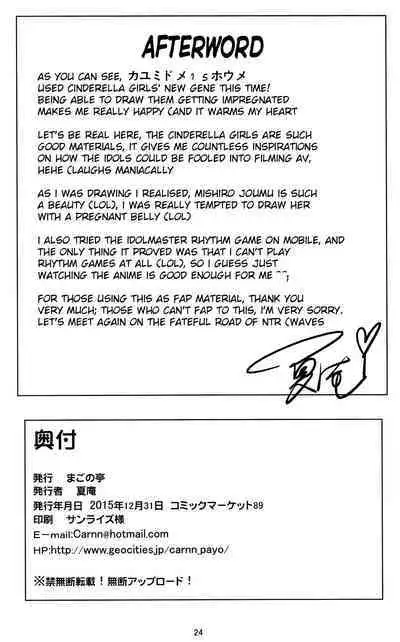 AFTERWORD
AS YOU CAN SEE, カユミドメ15ホウメ
USED CINDERELLA GIRLS' NEW GENE THIS TIME!
BEING ABLE TO DRAW THEM GETTING IMPREGNATED
MAKES ME REALLY HAPPY (AND IT WARMS MY HEART
LET'S BE REAL HERE, THE CINDERELLA GIRLS ARE SUCH
GOOD MATERIALS, IT GIVES ME COUNTLESS INSPIRATIONS
ON HOW THE IDOLS COULD BE FOOLED INTO FILMING AV,
HEHE (LAUGHS MANIACALLY
AS I WAS DRAWING I REALISED, MISHIRO JOUMU IS SUCH
A BEAUTY (LOL), I WAS REALLY TEMPTED TO DRAW HER
WITH A PREGNANT BELLY (LOL)
I ALSO TRIED THE IDOLMASTER RHYTHM GAME ON MOBILE, AND
THE ONLY THING IT PROVED WAS THAT I CAN'T PLAY
RHYTHM GAMES AT ALL (LOL), SO I GUESS JUST
WATCHING THE ANIME IS GOOD ENOUGH FOR ME ^^;
FOR THOSE USING THIS AS FAP MATERIAL, THANK YOU
VERY MUCH; THOSE WHO CAN'T FAP TO THIS, I'M VERY SORRY.
LET'S MEET AGAIN ON THE FATEFUL ROAD OF NTR (WAVES
夏庵
奥付
発行 まごの亭
発行者 夏庵
発行年月日 2015年12月31日 コミックマーケット89
印刷 サンライズ様
E-mail:Carnn@hotmail.com
HP:http://www.geocities.jp/carnn_payo/
※禁無断転載!無断アップロード!
24